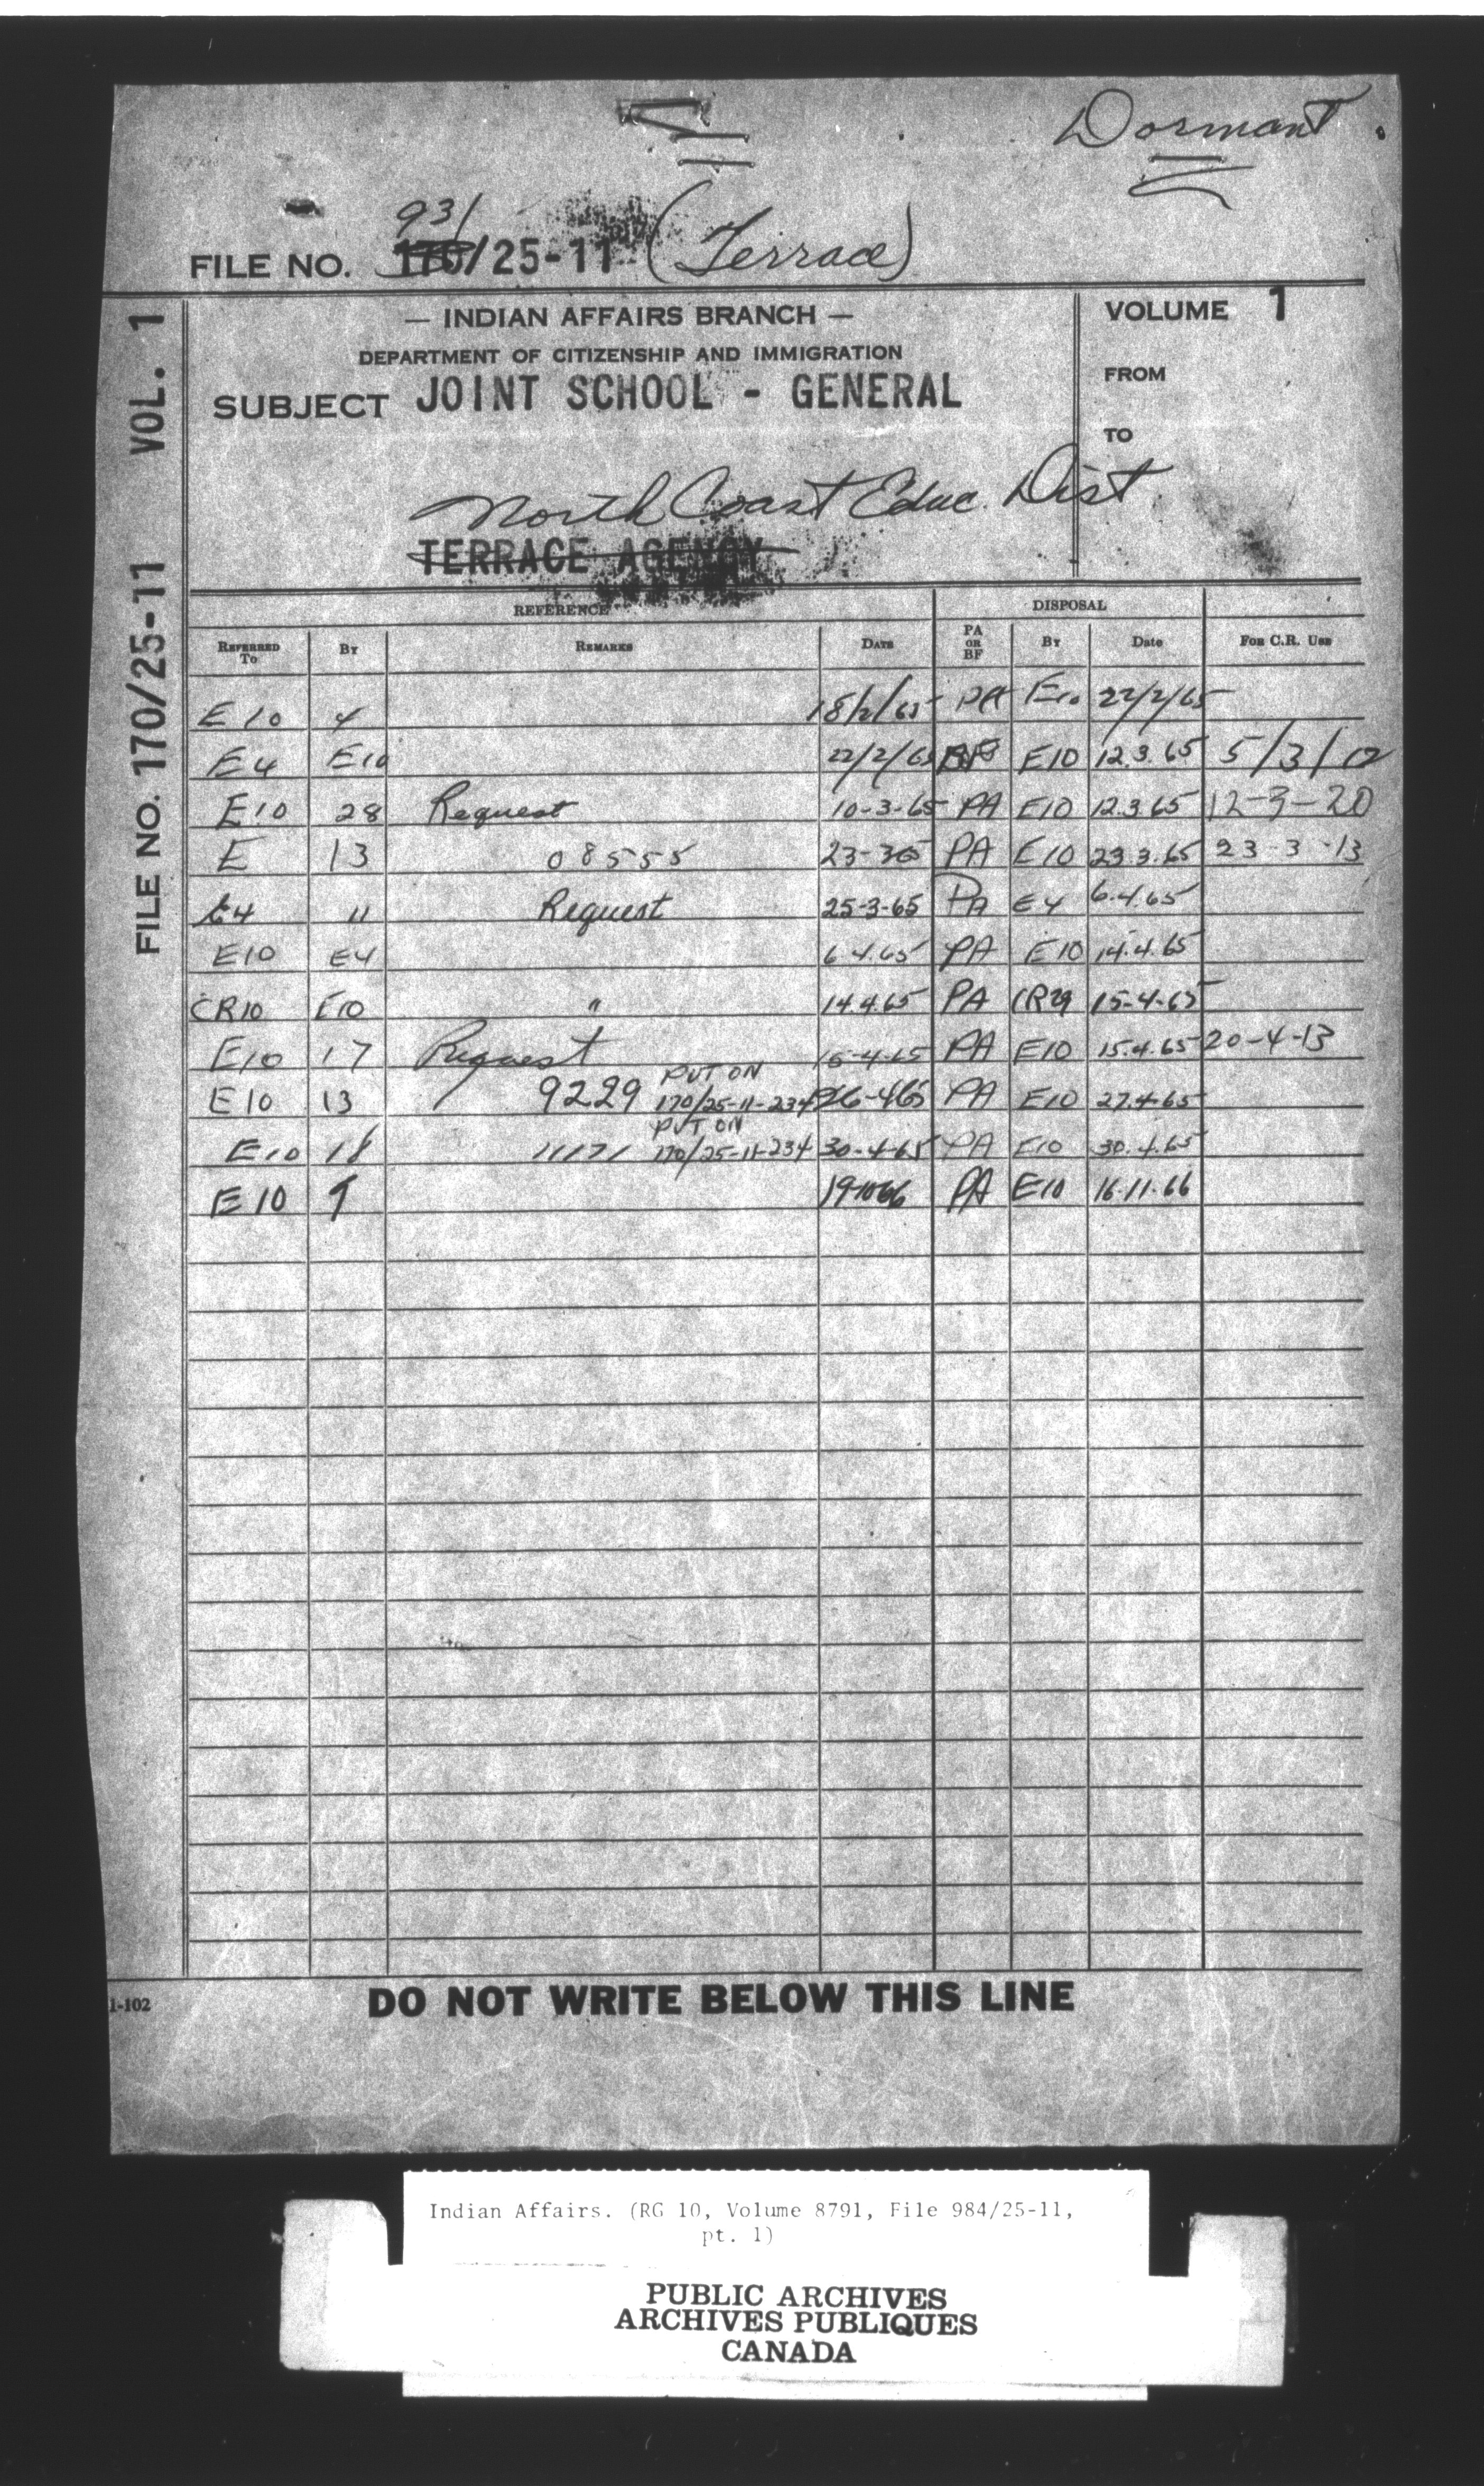 Dormant.
931
FILE NO. 170/25-11 (Terrace)
— INDIAN AFFAIRS BRANCH —
DEPARTMENT OF CITIZENSHIP AND IMMIGRATION
SUBJECT JOINT SCHOOL - GENERAL
North Coast Educ. Dist.
TERRACE AGENCY
VOLUME 1
FROM
TO
FILE NO. 170/25-11 VOL. 1
REFERENCE DISPOSAL
REFERRED TO BY REMARKS DATE PA OR BF BY Date FOR C.R. USE
E10 4 18/2/65 PA E10 22/2/65
E4 E10 22/2/65 BF E10 12.3.65 5/3/12
E10 28 Request 10-3-65 PA E10 12.3.65 12-3-20
E 13 08555 23-3-65 PA E10 23.3.65 23-3-13
E4 11 Request 25-3-65 PA E4 6.4.65
E10 E4 6.4.65 PA E10 14.4.65
CR10 E10 " 14.4.65 PA CR29 15-4-65
E10 17 Request 15-4-65 PA E10 15.4.65 20-4-13
PUT ON
E10 13 9229 170/25-11-234 26-4-65 PA E10 27.4.65
PUT ON
E10 18 11171 170/25-11-234 30-4-65 PA E10 30.4.65
E10 9 19-10-66 PA E10 16.11.66
1-102
DO NOT WRITE BELOW THIS LINE
Indian Affairs. (RG 10, Volume 8791, File 984/25-11,
pt. 1)
PUBLIC ARCHIVES
ARCHIVES PUBLIQUES
CANADA